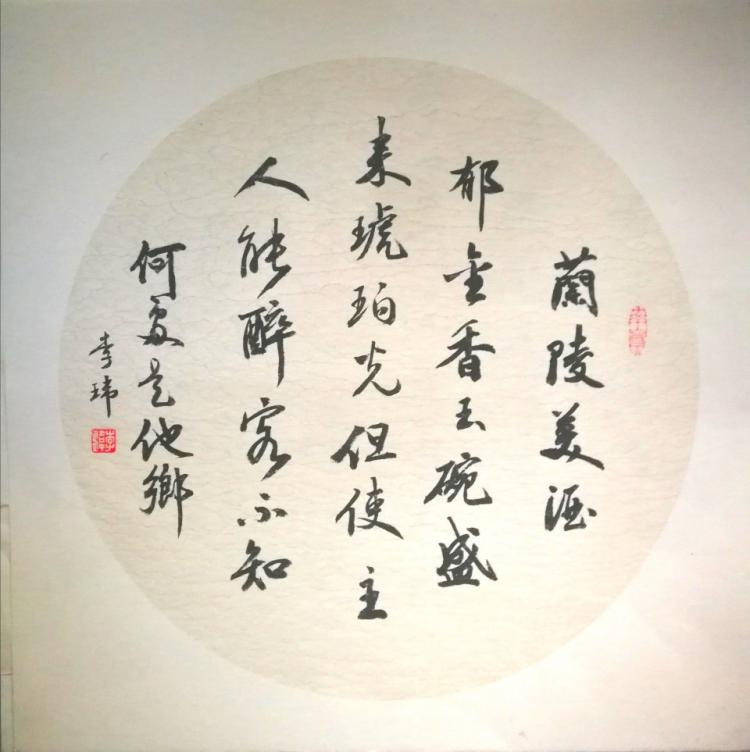 蘭陵美酒
郁金香玉碗盛
来琥珀光但使主
人能醉客不知
何處是他鄉
李瑋